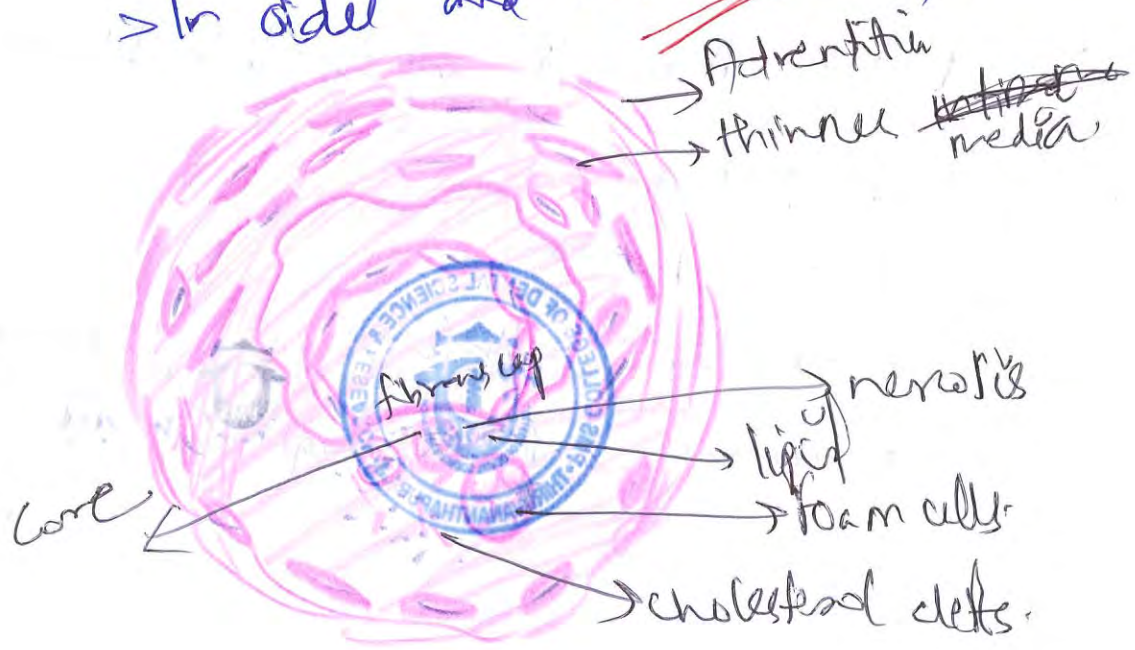 > In older and
→ Adventitia
→ thinner media
fibrous cap
→ necrosis
→ lipid
core
→ foam cells.
→ cholesterol clefts.